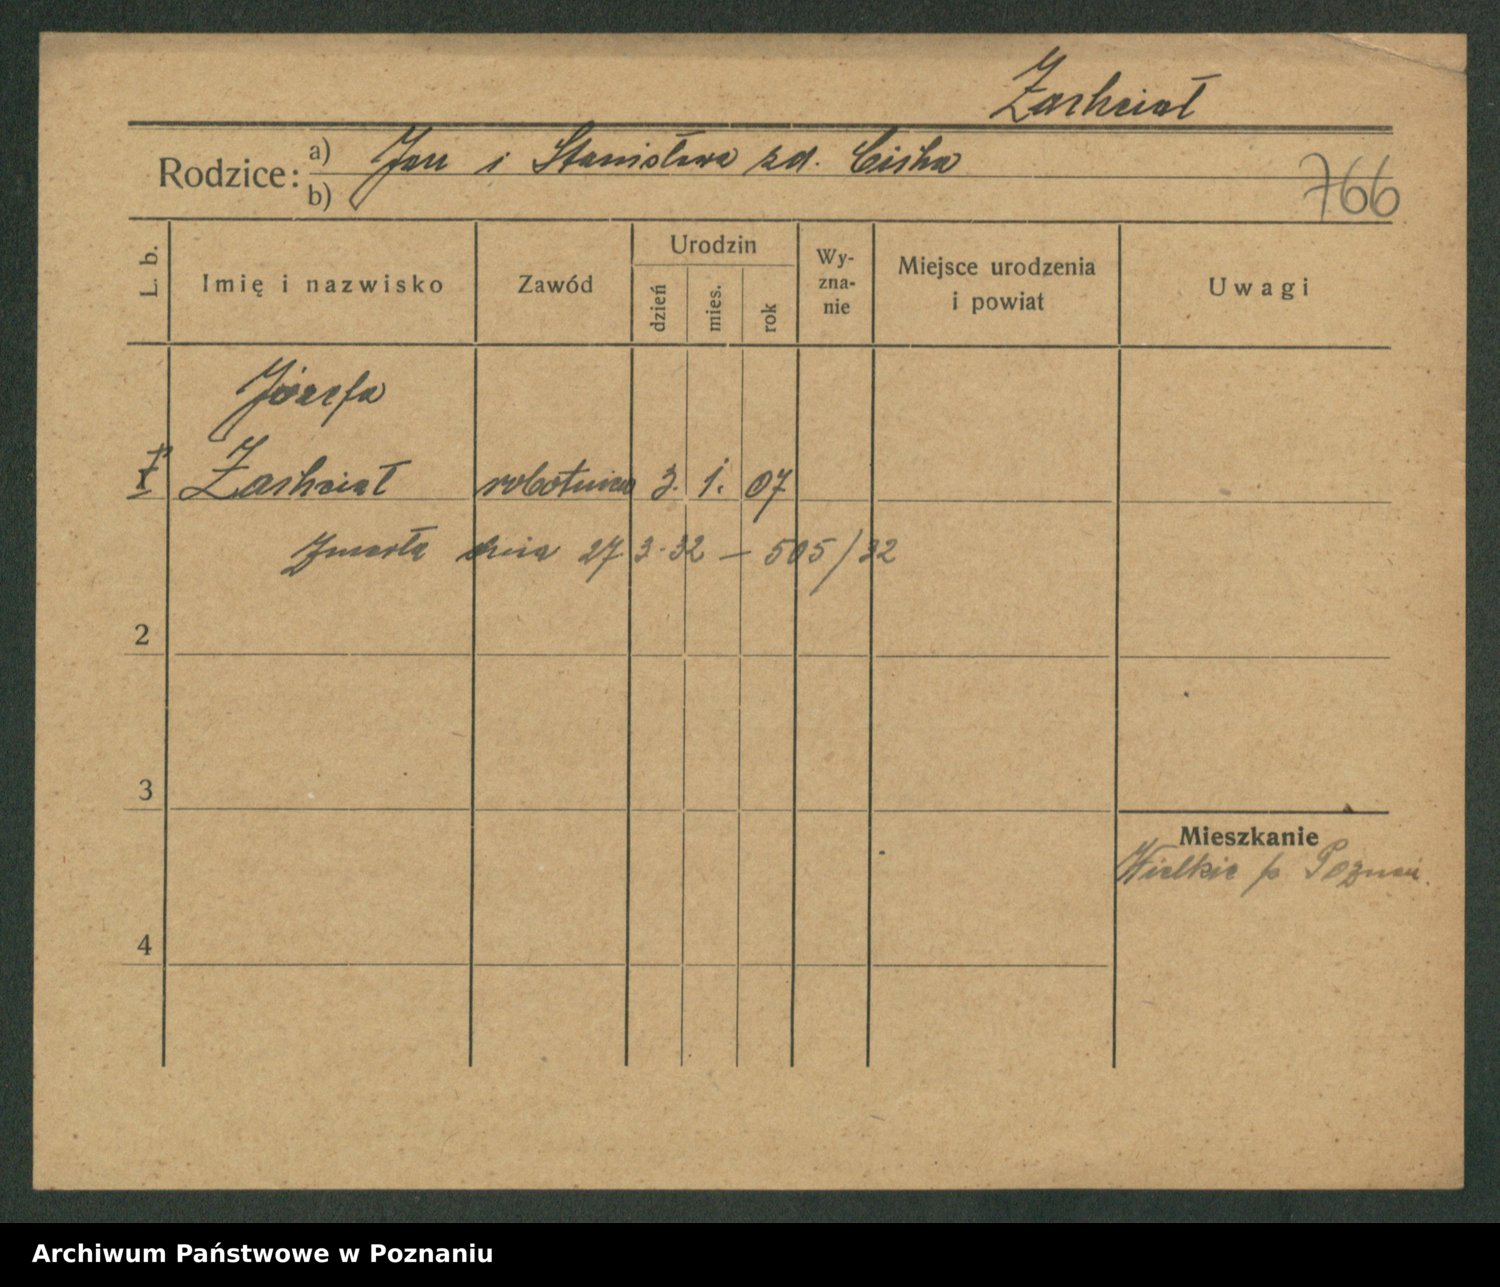 Zachciał
Rodzice: a) Jan i Stanisława zd. Cicha
b)
766
L. b.
Imię i nazwisko
Zawód
Urodzin
dzień
mies.
rok
Wy-
zna-
nie
Miejsce urodzenia
i powiat
Uwagi
Józefa
Zachciał robotnica 3. 1. 07
Zmarła dnia 27 3. 32 — 505/32
2
3
Mieszkanie
Wielkie p. Poznań.
4
Archiwum Państwowe w Poznaniu